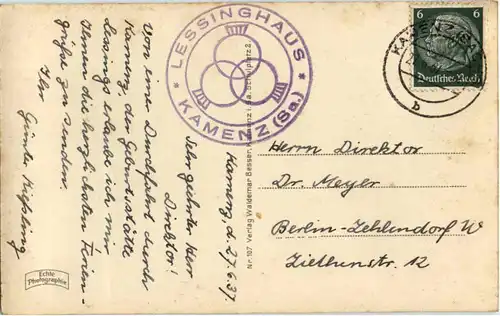 Kamenz d. 27.6.37.
Sehr geehrter Herr
Direktor!
Von einer Durchfahrt durch
Kamenz, der Geburtsstätte
Lessings erlaube ich mir,
Ihnen die herzlichsten Ferien-
grüße zu senden.
Ihr
Günter
* LESSINGHAUS *
KAMENZ (Sa.)
Nr. 107 Verlag Waldemar Besser, Kamenz i. Sa. Schulplatz 2
Echte
Photographie
6 6
Deutsches Reich
KAMENZ (SA)
b
Herrn Direktor
Dr. Meyer
Berlin-Zehlendorf W
Ziethenstr. 12